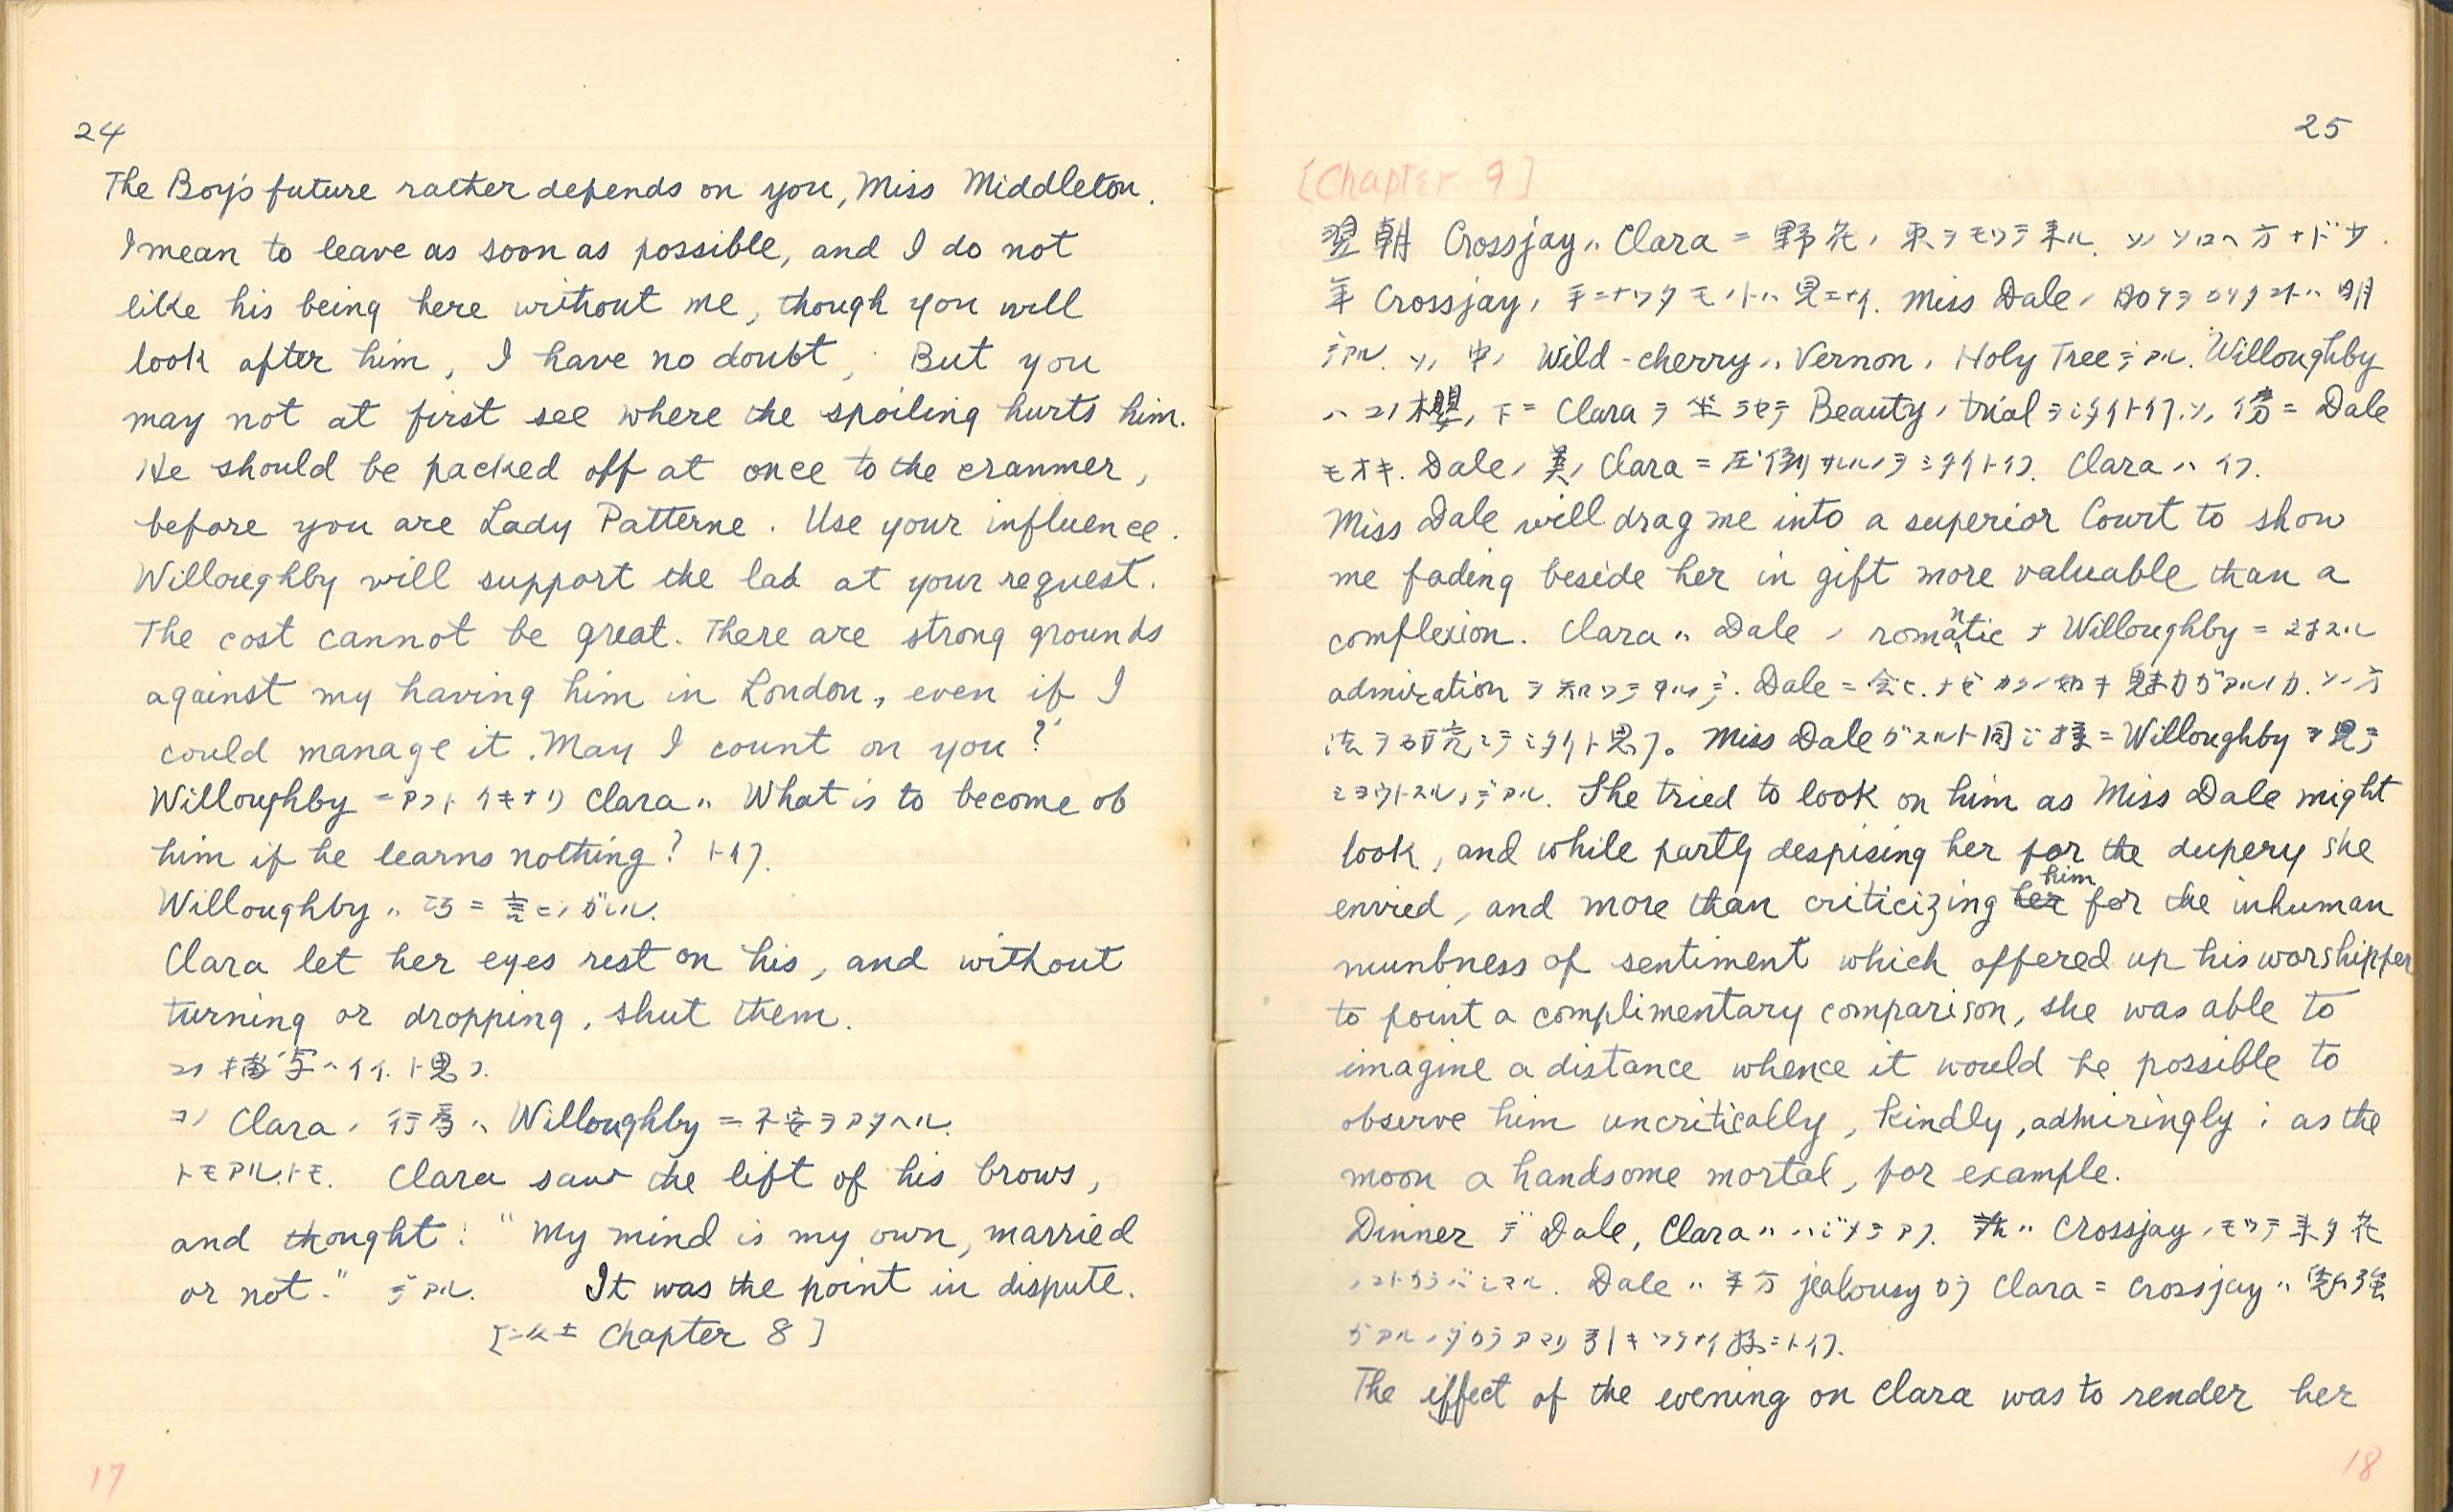 24
The Boy's future rather depends on you, Miss Middleton.
I mean to leave as soon as possible, and I do not
like his being here without me, though you will
look after him, I have no doubt, But you
may not at first see where the spoiling hurts him.
He should be packed off at once to the cranmer,
before you are Lady Patterne. Use your influence.
Willoughby will support the lad at your request.
The cost cannot be great. There are strong grounds
against my having him in London, even if I
could manage it. May I count on you?"
Willoughby ニアフト イキナリ Clara ハ What is to become ob
him if he learns nothing? トイフ.
Willoughby ハ 巧ニ言ヒノガレル.
Clara let her eyes rest on his, and without
turning or dropping, shut them.
コノ描写ハイイ.ト思フ.
コノ Clara ノ 行為ハ Willoughby ニ不安ヲアタヘル.
トモアル.トモ. Clara saw the lift of his brows,
and thought: "My mind is my own, married
or not." デアル. It was the point in dispute.
[以上 Chapter 8]
17
25
[Chapter 9]
翌朝 Crossjay ハ Clara ニ 野花ノ束ヲモツテ来ル. ソノソロヘ方ナドサ
年 Crossjay ノ手ニナツタモノトハ見エナイ. Miss Dale ノ助ケヲカリタコトハ明
デアル. ソノ中ノ Wild-cherry ハ Vernon ノ Holy Tree デアル. Willoughby
ハコノ桜ノ下ニ Clara ヲ坐ラセテ Beauty ノ trial ヲシタイトイフ.ソノ傍ニ Dale
モオキ. Dale ノ美ノ Clara ニ圧倒サルルノヲミタイトイフ. Clara ハイフ.
Miss Dale will drag me into a superior Court to show
me fading beside her in gift more valuable than a
complexion. Clara ハ Dale ノ romantic ナ Willoughby ニ対スル
admiration ヲ知ツテヰルノデ. Dale ニ会ヒ.ナゼカクノ如キ魅力ガアルノカ.ソノ方
法ヲ研究シテミタイト思フ。 Miss Dale ガスルト同ジ様ニ Willoughby ヲ見テ
ミヨウトスルノデアル. She tried to look on him as Miss Dale might
look, and while partly despising her for the dupery she
envied, and more than criticizing him for the inhuman
numbness of sentiment which offered up his worshipper
to point a complimentary comparison, she was able to
imagine a distance whence it would be possible to
observe him uncritically, kindly, admiringly; as the
moon a handsome mortal, for example.
Dinner デ Dale, Clara ハハジメテアフ. 話ハ Crossjay ノモツテ来タ花
ノコトカラハジマル. Dale ハ半方 jealousy カラ Clara ニ Crossjay ハ勉強
ガアルノダカラアマリ引キツケナイ様ニトイフ.
The effect of the evening on Clara was to render her
18